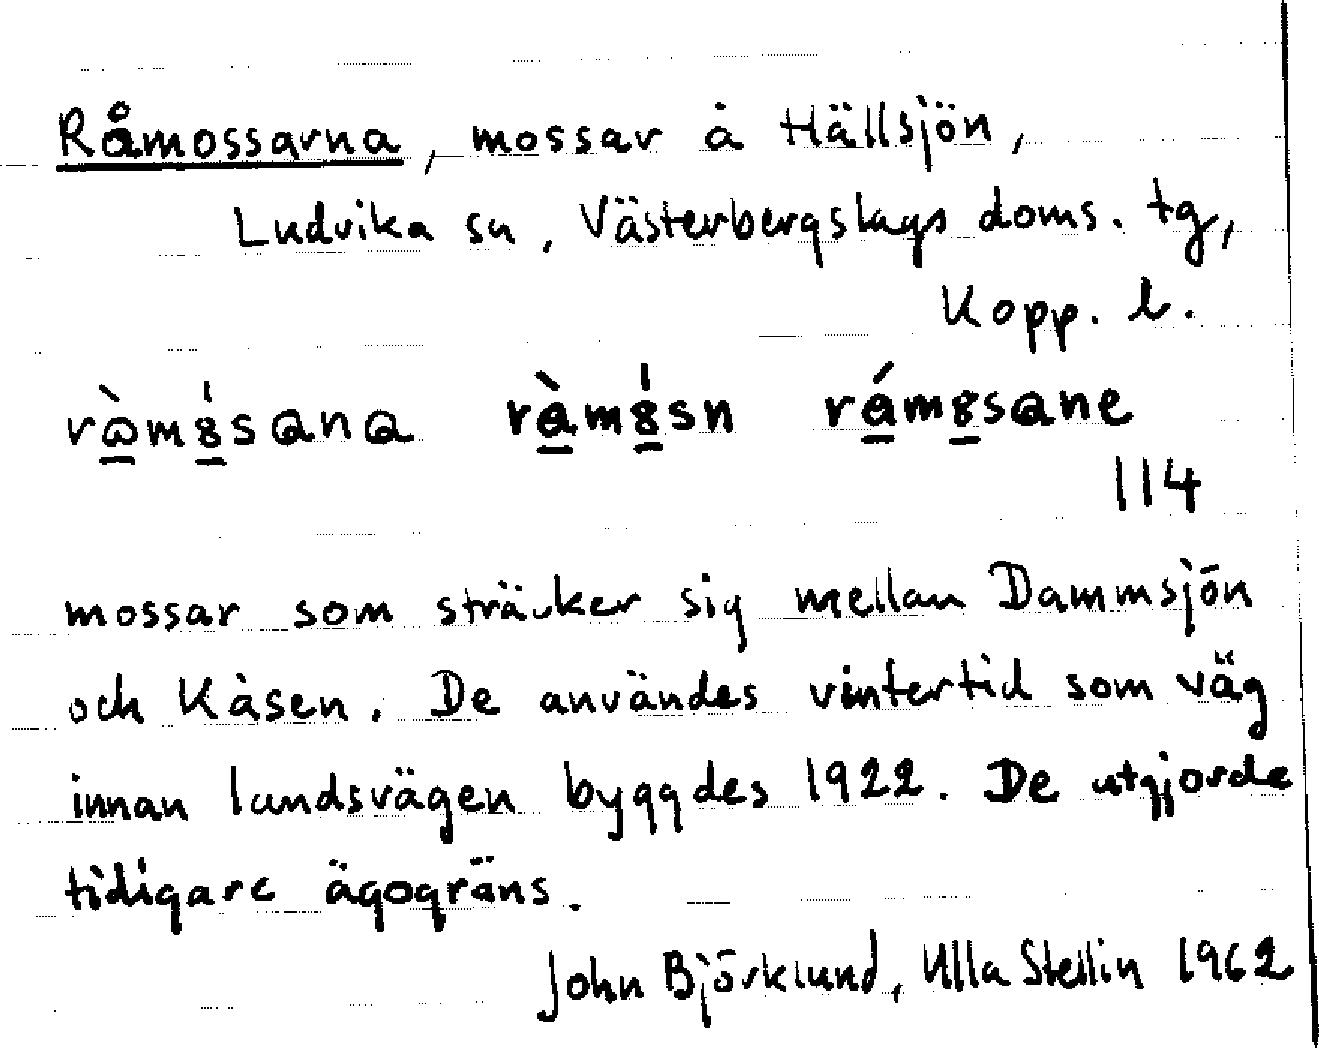 Råmossarna, mossar å Hällsjön,
Ludvika sn, Västerbergslags doms. tg,
Kopp. l.
114
mossar som sträcker sig mellan Dammsjön
och Kåsen. De användes vintertid som väg
innan landsvägen byggdes 1922. De utgjorde
tidigare ägogräns.
John Björklund, Ulla Stellin 1962